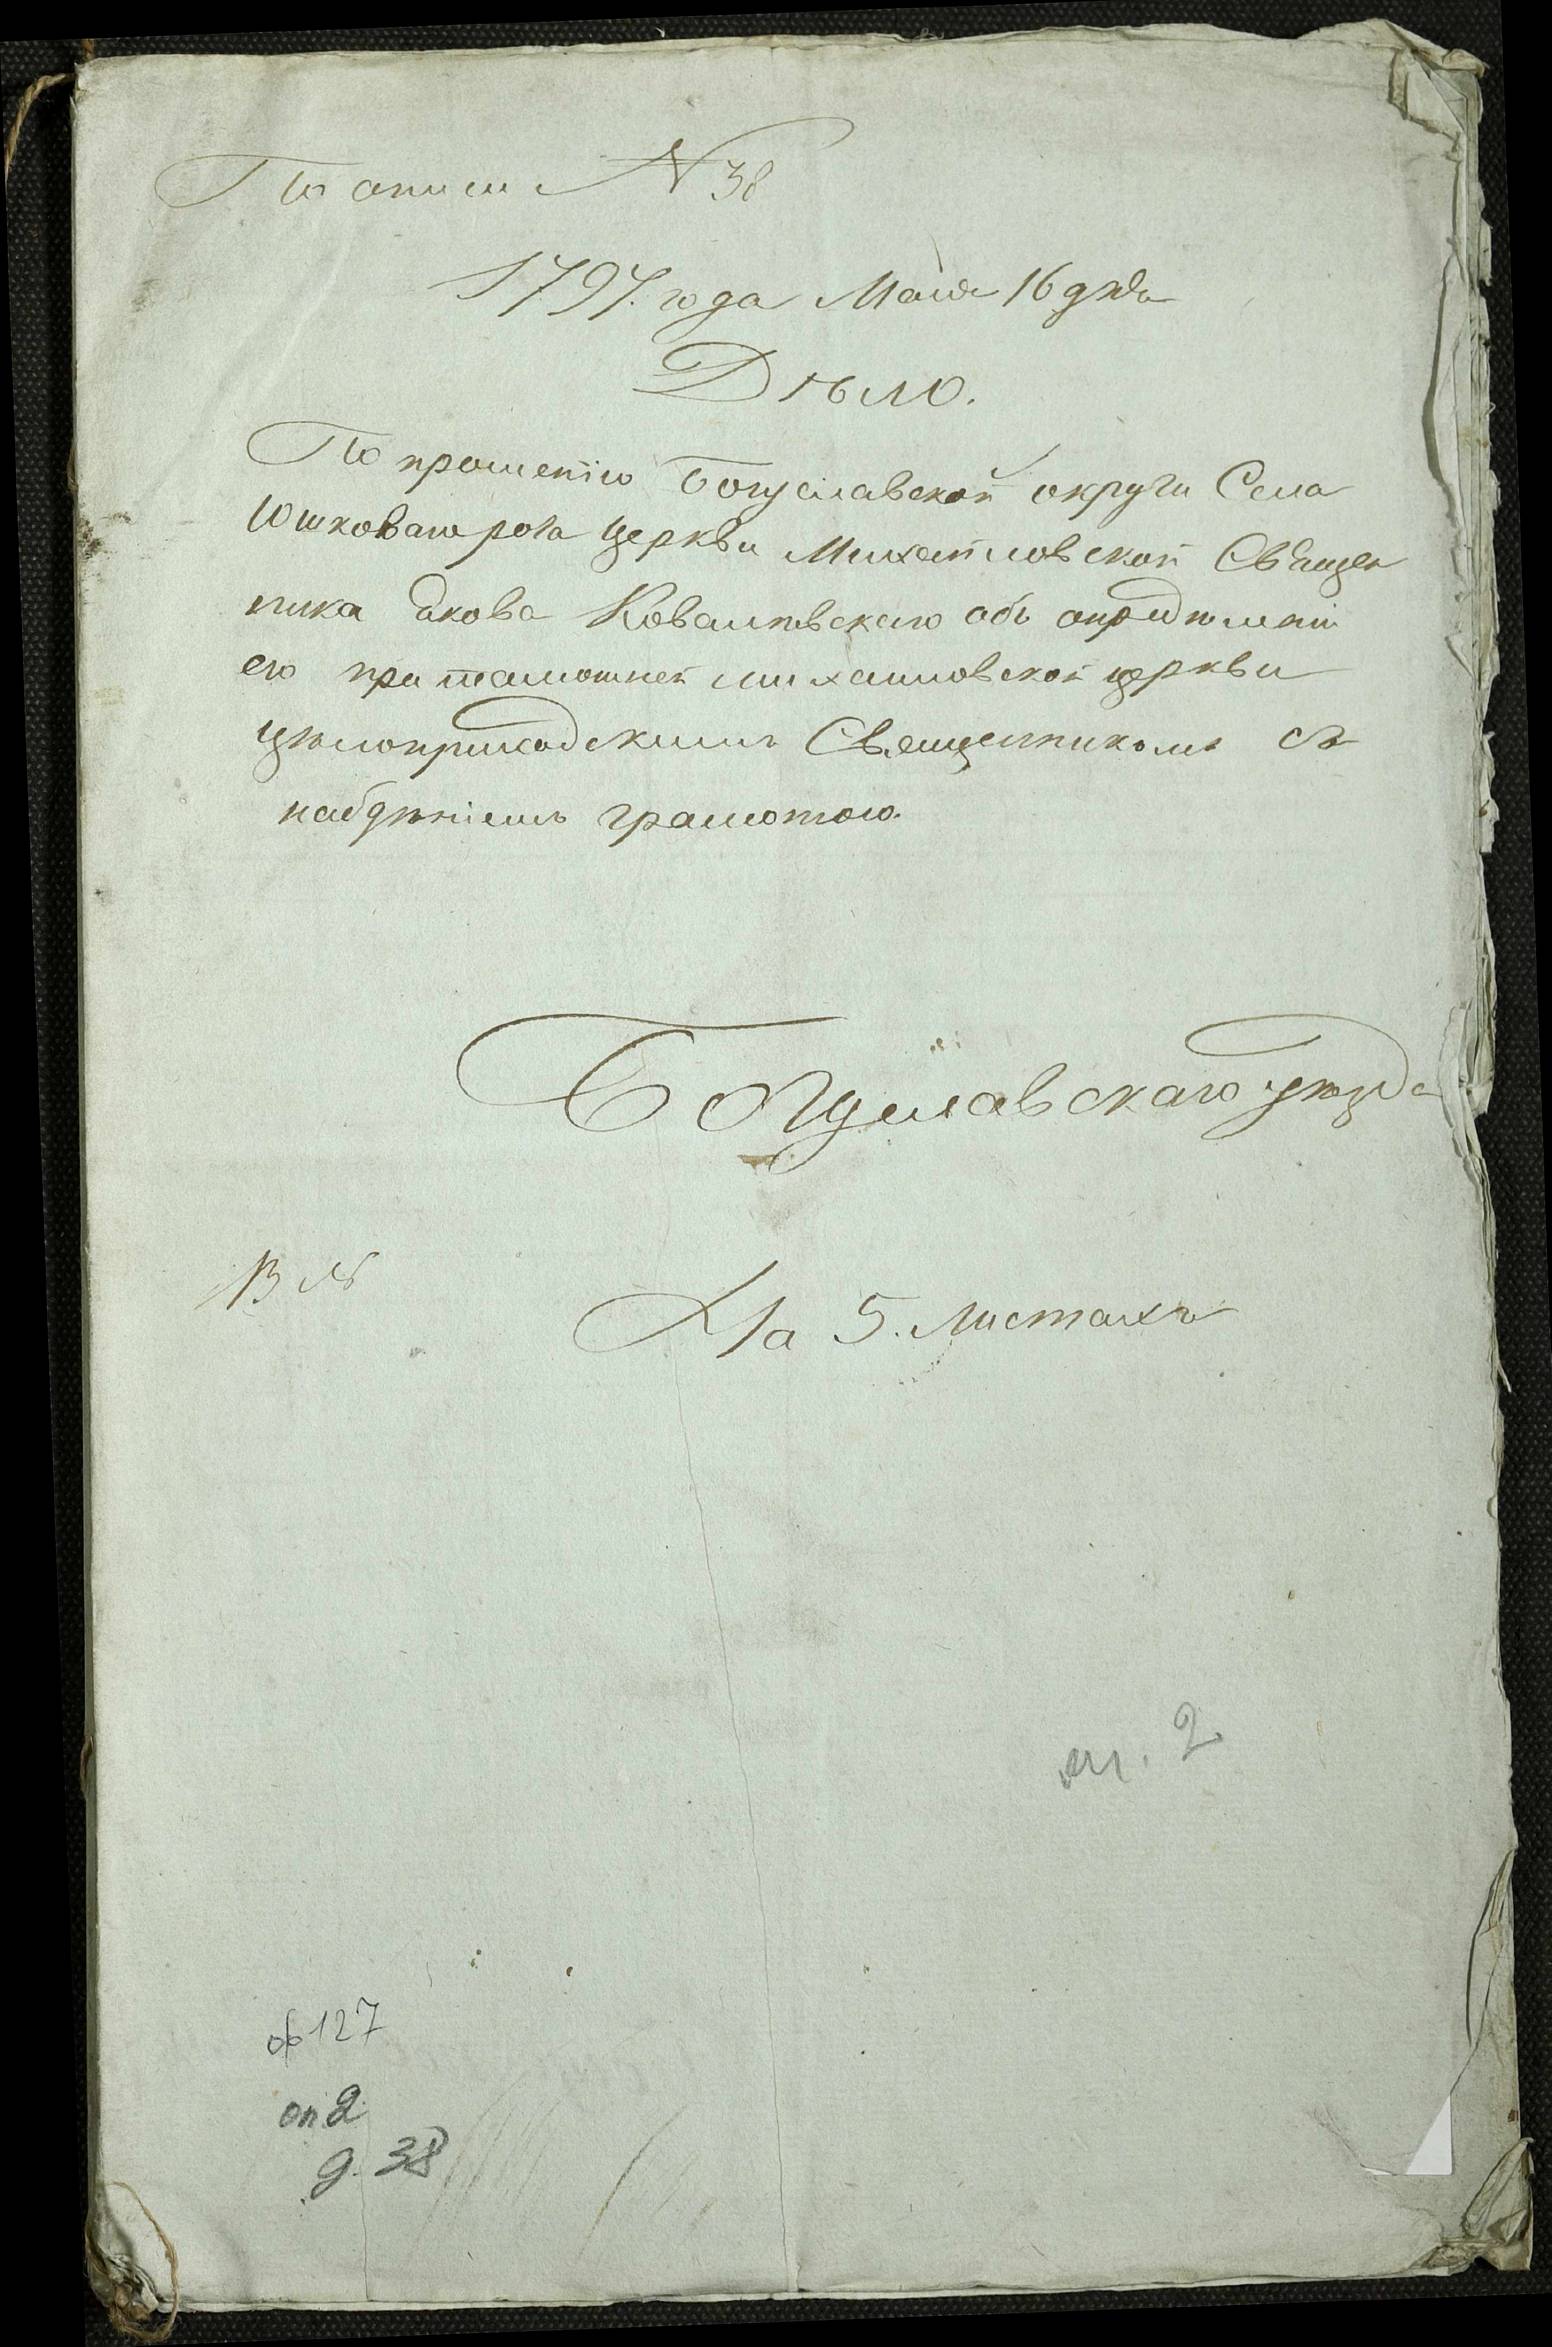 По описи № 38
1797. года Маія 16 дня
Дѣло.
По прошенію Богуславской округи Села
Юшковаго рога церкви Михайловской Священ
ника Якова Ковалевскаго объ опредѣленіи
его при тамошней михайловской церкви
цѣлоприходскимъ Священникомъ съ
набдѣніемъ грамотою.
Богуславскаго уѣзда
На 5. листахъ
оп 2
д. 38
127